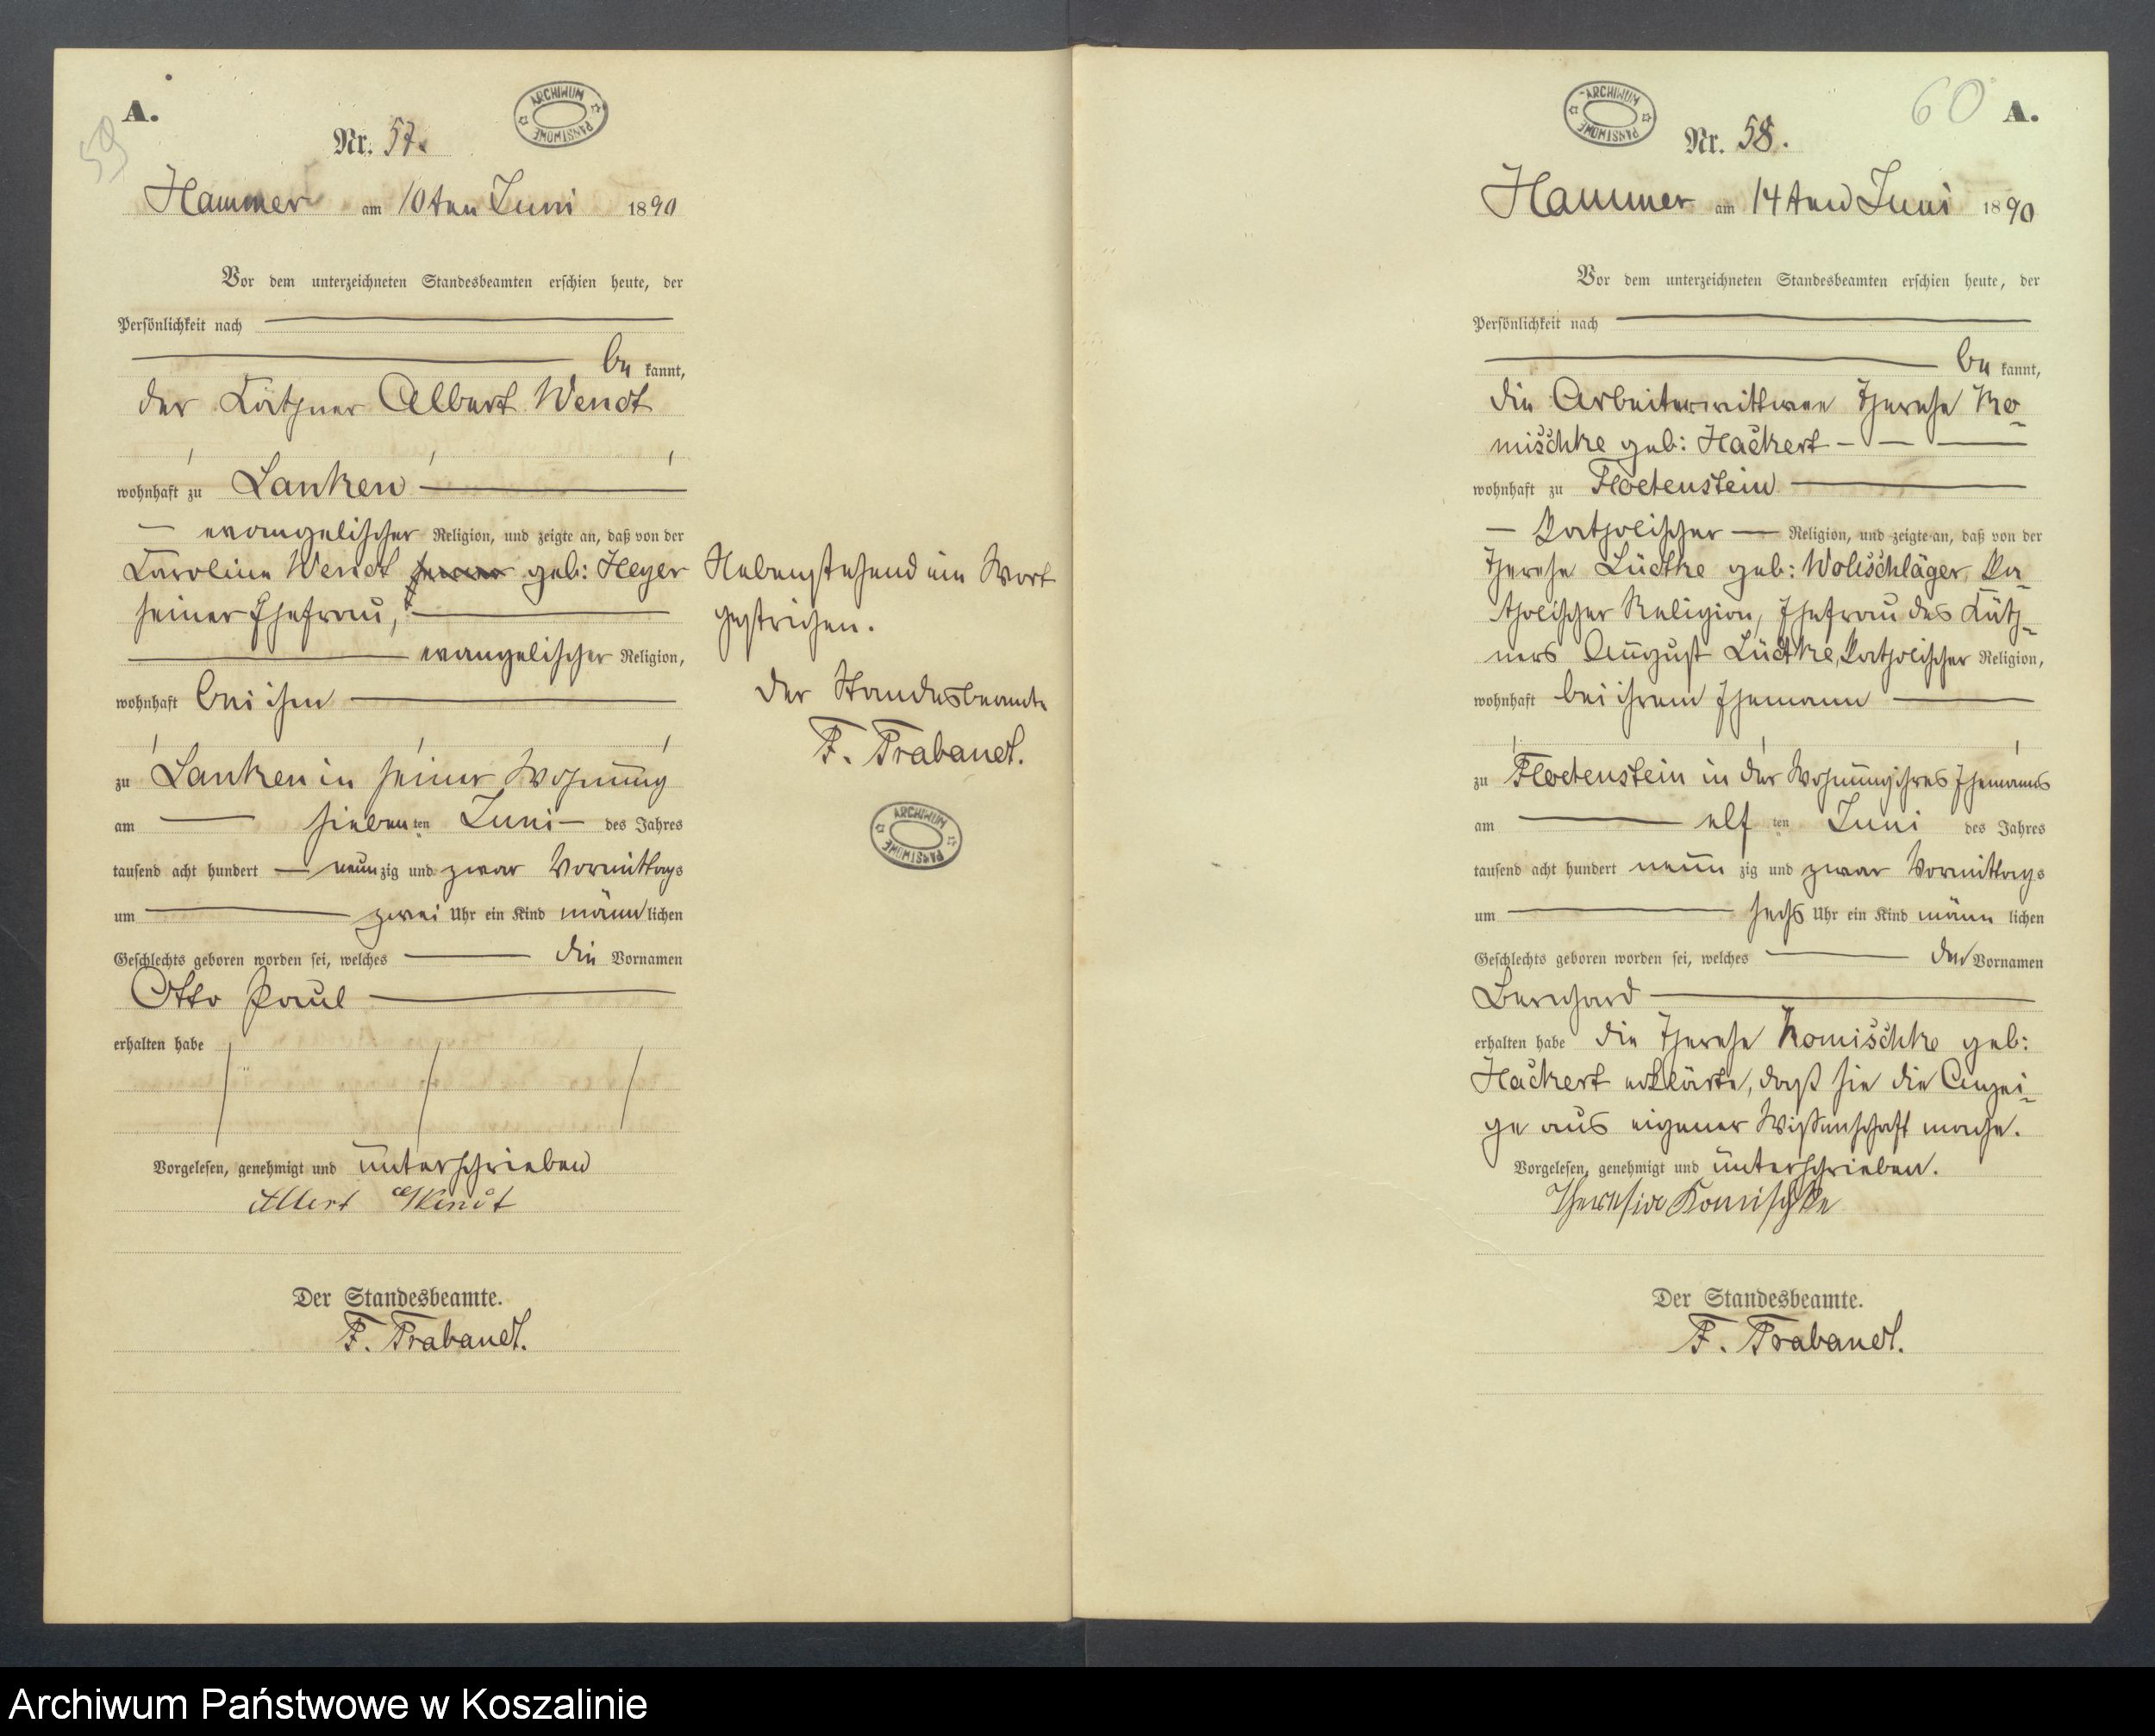 A.
59
Nr. 57.
ARCHIWUM PAŃSTWOWE
Hammer am 10ten Juni 1890
Vor dem unterzeichneten Standesbeamten erschien heute, der
Persönlichkeit nach
be kannt,
der Käthner Albert Wendt
wohnhaft zu Lanken
evangelischer Religion, und zeigte an, daß von der
Karoline Wendt geb: Heyer
seiner Ehefrau,
evangelischer Religion,
wohnhaft bei ihm
zu Lanken in seiner Wohnung
am sieben ten Juni des Jahres
tausend acht hundert neun zig und zwar Vormittags
um zwei Uhr ein Kind männ lichen
Geschlechts geboren worden sei, welches die Vornamen
Otto Paul
erhalten habe
Vorgelesen, genehmigt und unterschrieben
Albert Wendt
Der Standesbeamte.
F. Trabandt.
Nebenstehend ein Wort
gestrichen.
Der Standesbeamte
F. Trabandt.
ARCHIWUM PAŃSTWOWE
ARCHIWUM PAŃSTWOWE
60 A.
Nr. 58.
Hammer am 14ten Juni 1890
Vor dem unterzeichneten Standesbeamten erschien heute, der
Persönlichkeit nach
be kannt,
die Arbeiterwittwe Therese Ko-
mischke geb: Hackert
wohnhaft zu Floetenstein
katholischer Religion, und zeigte an, daß von der
Therese Lüdtke geb: Wollschläger, ka-
tholischer Religion, Ehefrau des Käth-
ners August Lüdtke, katholischer Religion,
wohnhaft bei ihrem Ehemann
zu Floetenstein in der Wohnung ihres Ehemanns
am elf ten Juni des Jahres
tausend acht hundert neun zig und zwar Vormittags
um sechs Uhr ein Kind männ lichen
Geschlechts geboren worden sei, welches den Vornamen
Bernhard
erhalten habe die Therese Komischke geb:
Hackert erklärte, daß sie die Anzei-
ge aus eigener Wissenschaft mache.
Vorgelesen, genehmigt und unterschrieben.
Theresia Komischke
Der Standesbeamte.
F. Trabandt.
Archiwum Państwowe w Koszalinie